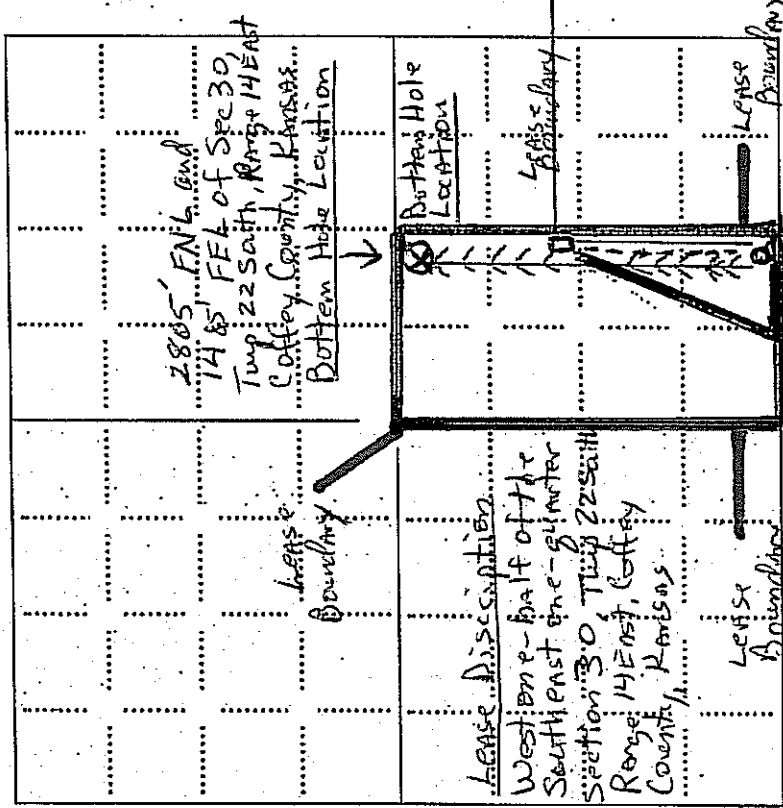 2805' FNL and
1485' FEL of Sec 30,
Twp 22 South, Range 14 East
Coffey County, Kansas
Bottem Hole Location
Lease
Boundary
Bottem Hole
Location
Lease
Boundary
Lease Discription
West one-half of the
Southeast one-quarter
Section 30, Twp 22 South
Range 14 East, Coffey
County, Kansas
Lease
Boundary
Lease
Boundary